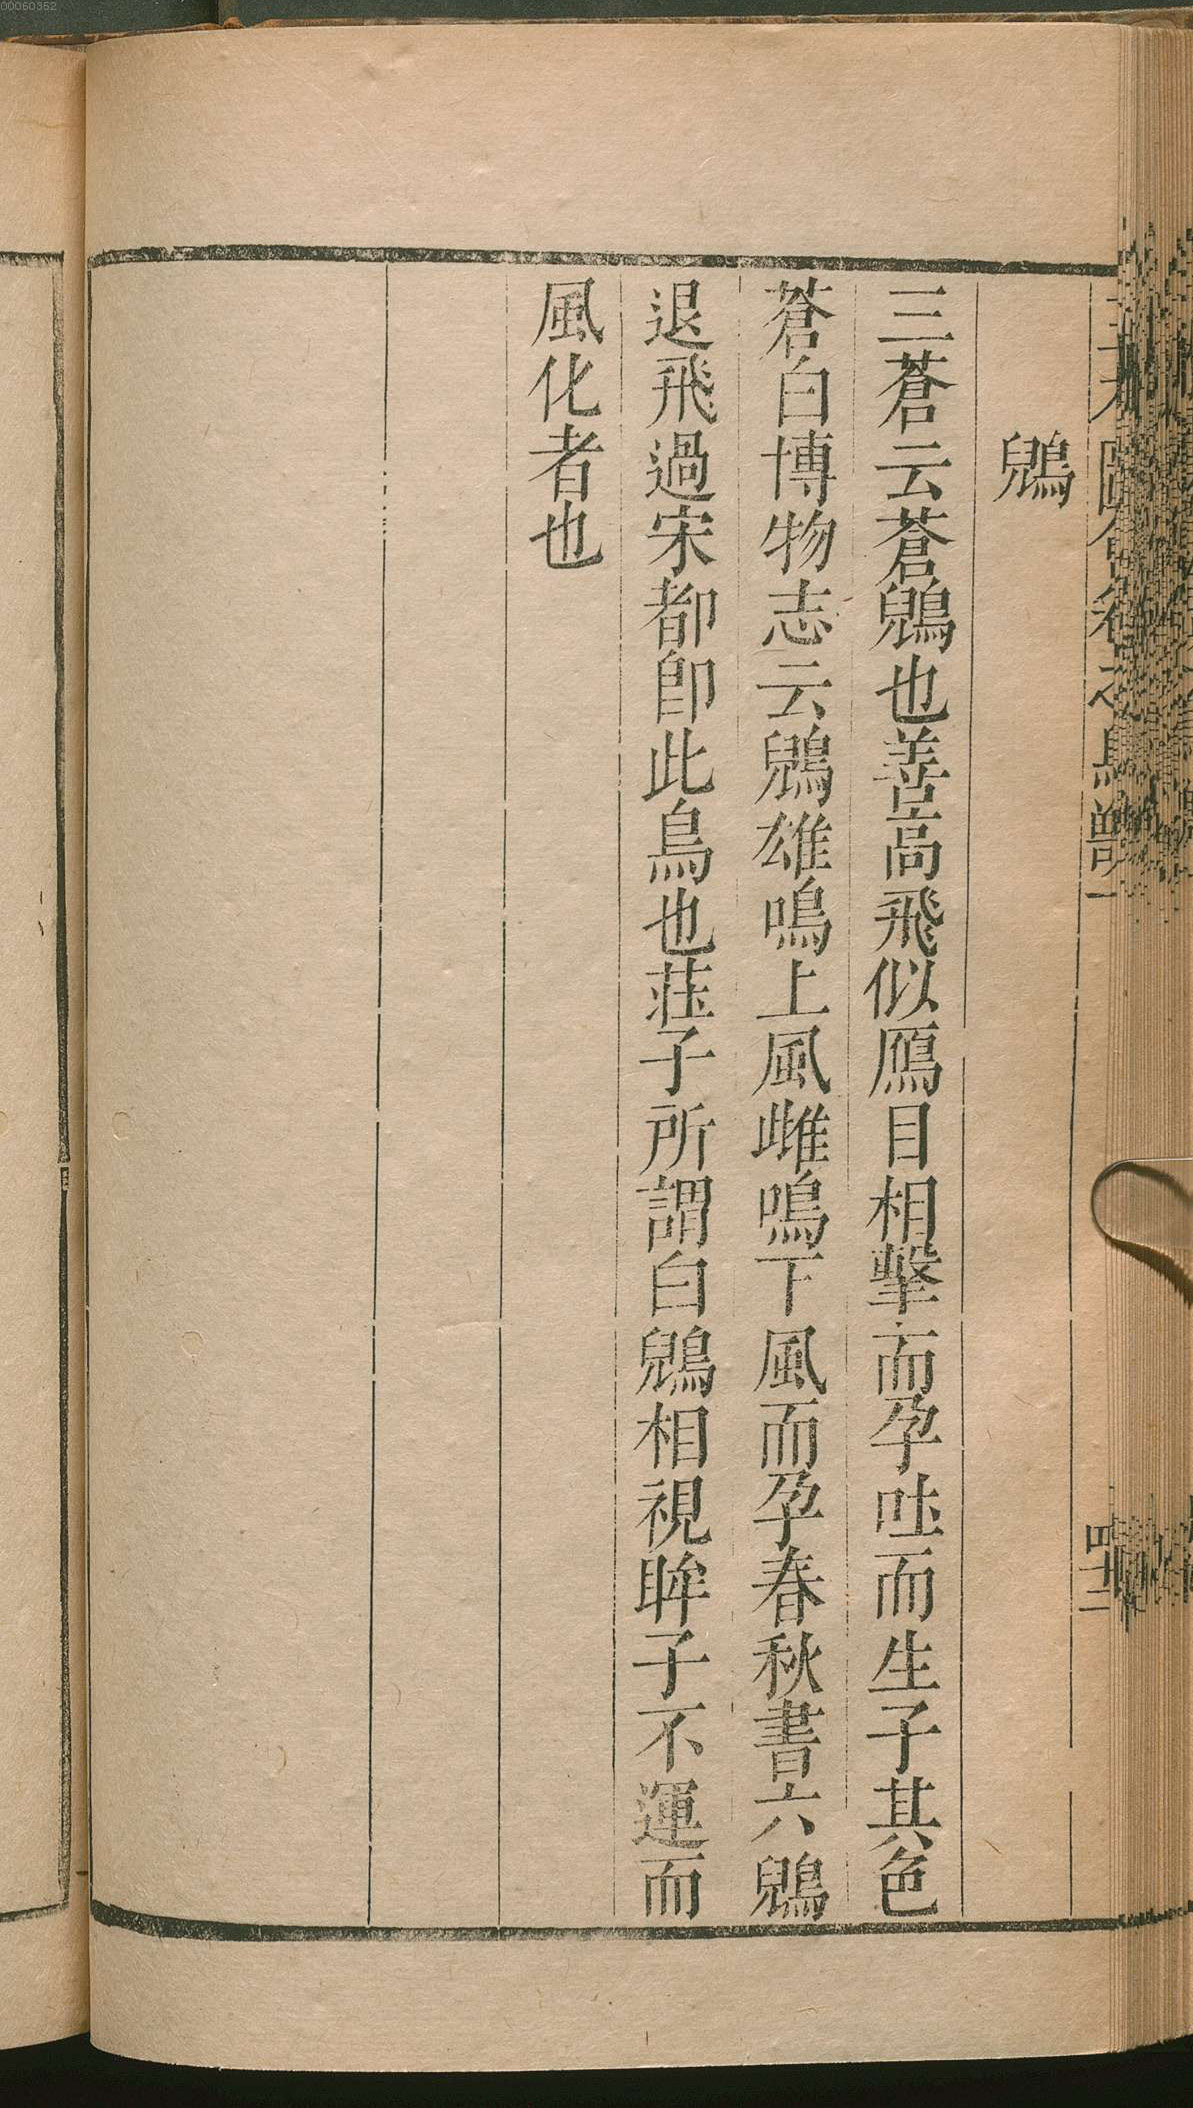 00060352
鶂
三蒼云蒼鶂也善高飛似鴈目相擊而孕吐而生子其色
蒼白博物志云鶂雄鳴上風雌鳴下風而孕春秋書六鶂
退飛過宋都卽此鳥也莊子所謂白鶂相視眸子不運而
風化者也
四十二